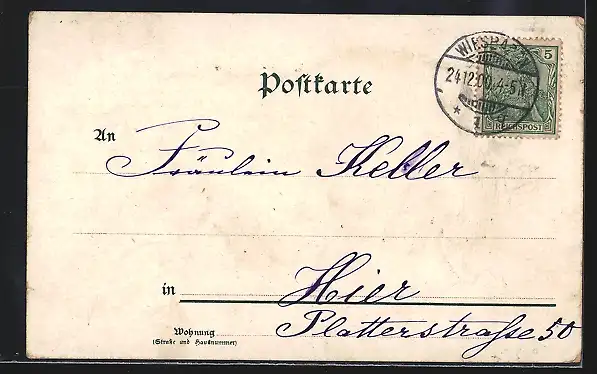 WIESBADEN
24.12.00. 4-5N
* 1 d
5
REICHSPOST
Postkarte
An
Fräulein Keller
in Hier
Wohnung
(Straße und Hausnummer)
Platterstraße 50